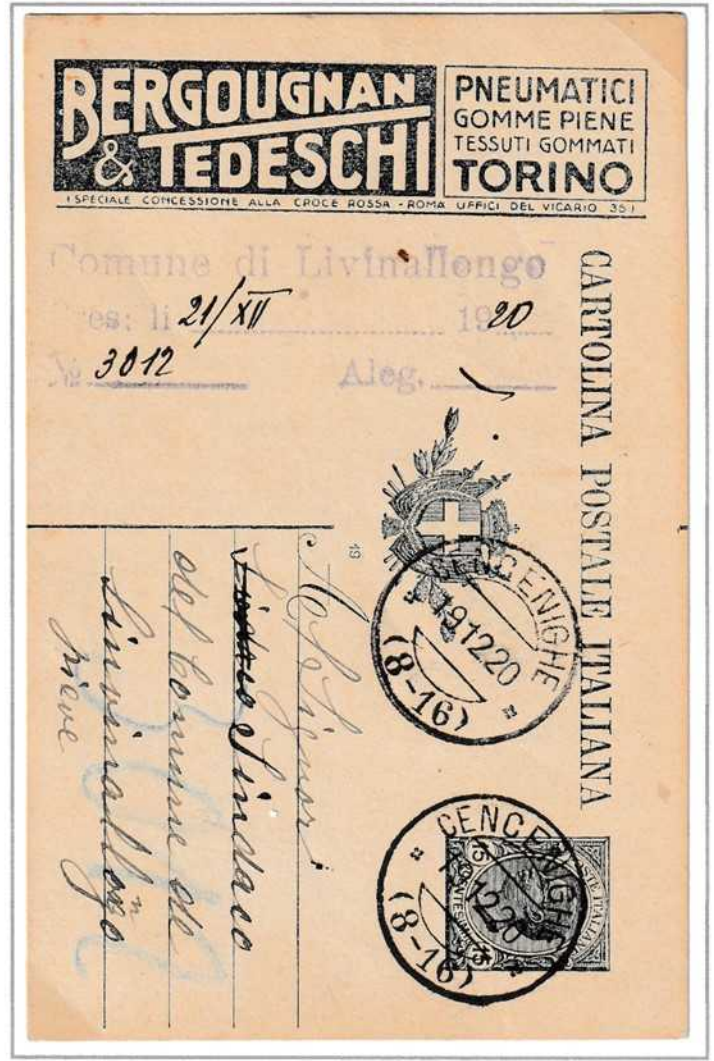 BERGOUGNAN
& TEDESCHI
PNEUMATICI
GOMME PIENE
TESSUTI GOMMATI
TORINO
(SPECIALE CONCESSIONE ALLA CROCE ROSSA - ROMA UFFICI DEL VICARIO 35)
Comune di Livinallongo
Pres: li 21/XII 1920
№ 3012 Aleg.
CARTOLINA POSTALE ITALIANA
19
CENCENIGHE
19.12.20
(8-16)
CENCENIGHE
12.20
(8-16)
POSTE ITALIANE
15 CENTESIMI 15
Signori
Sindaco
del Comune di
Linvinallongo
Pieve